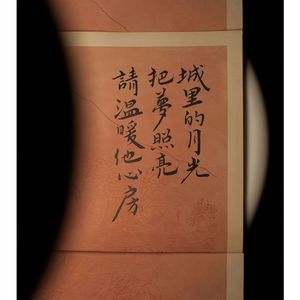 城里的月光
把夢照亮
請溫暖他心房